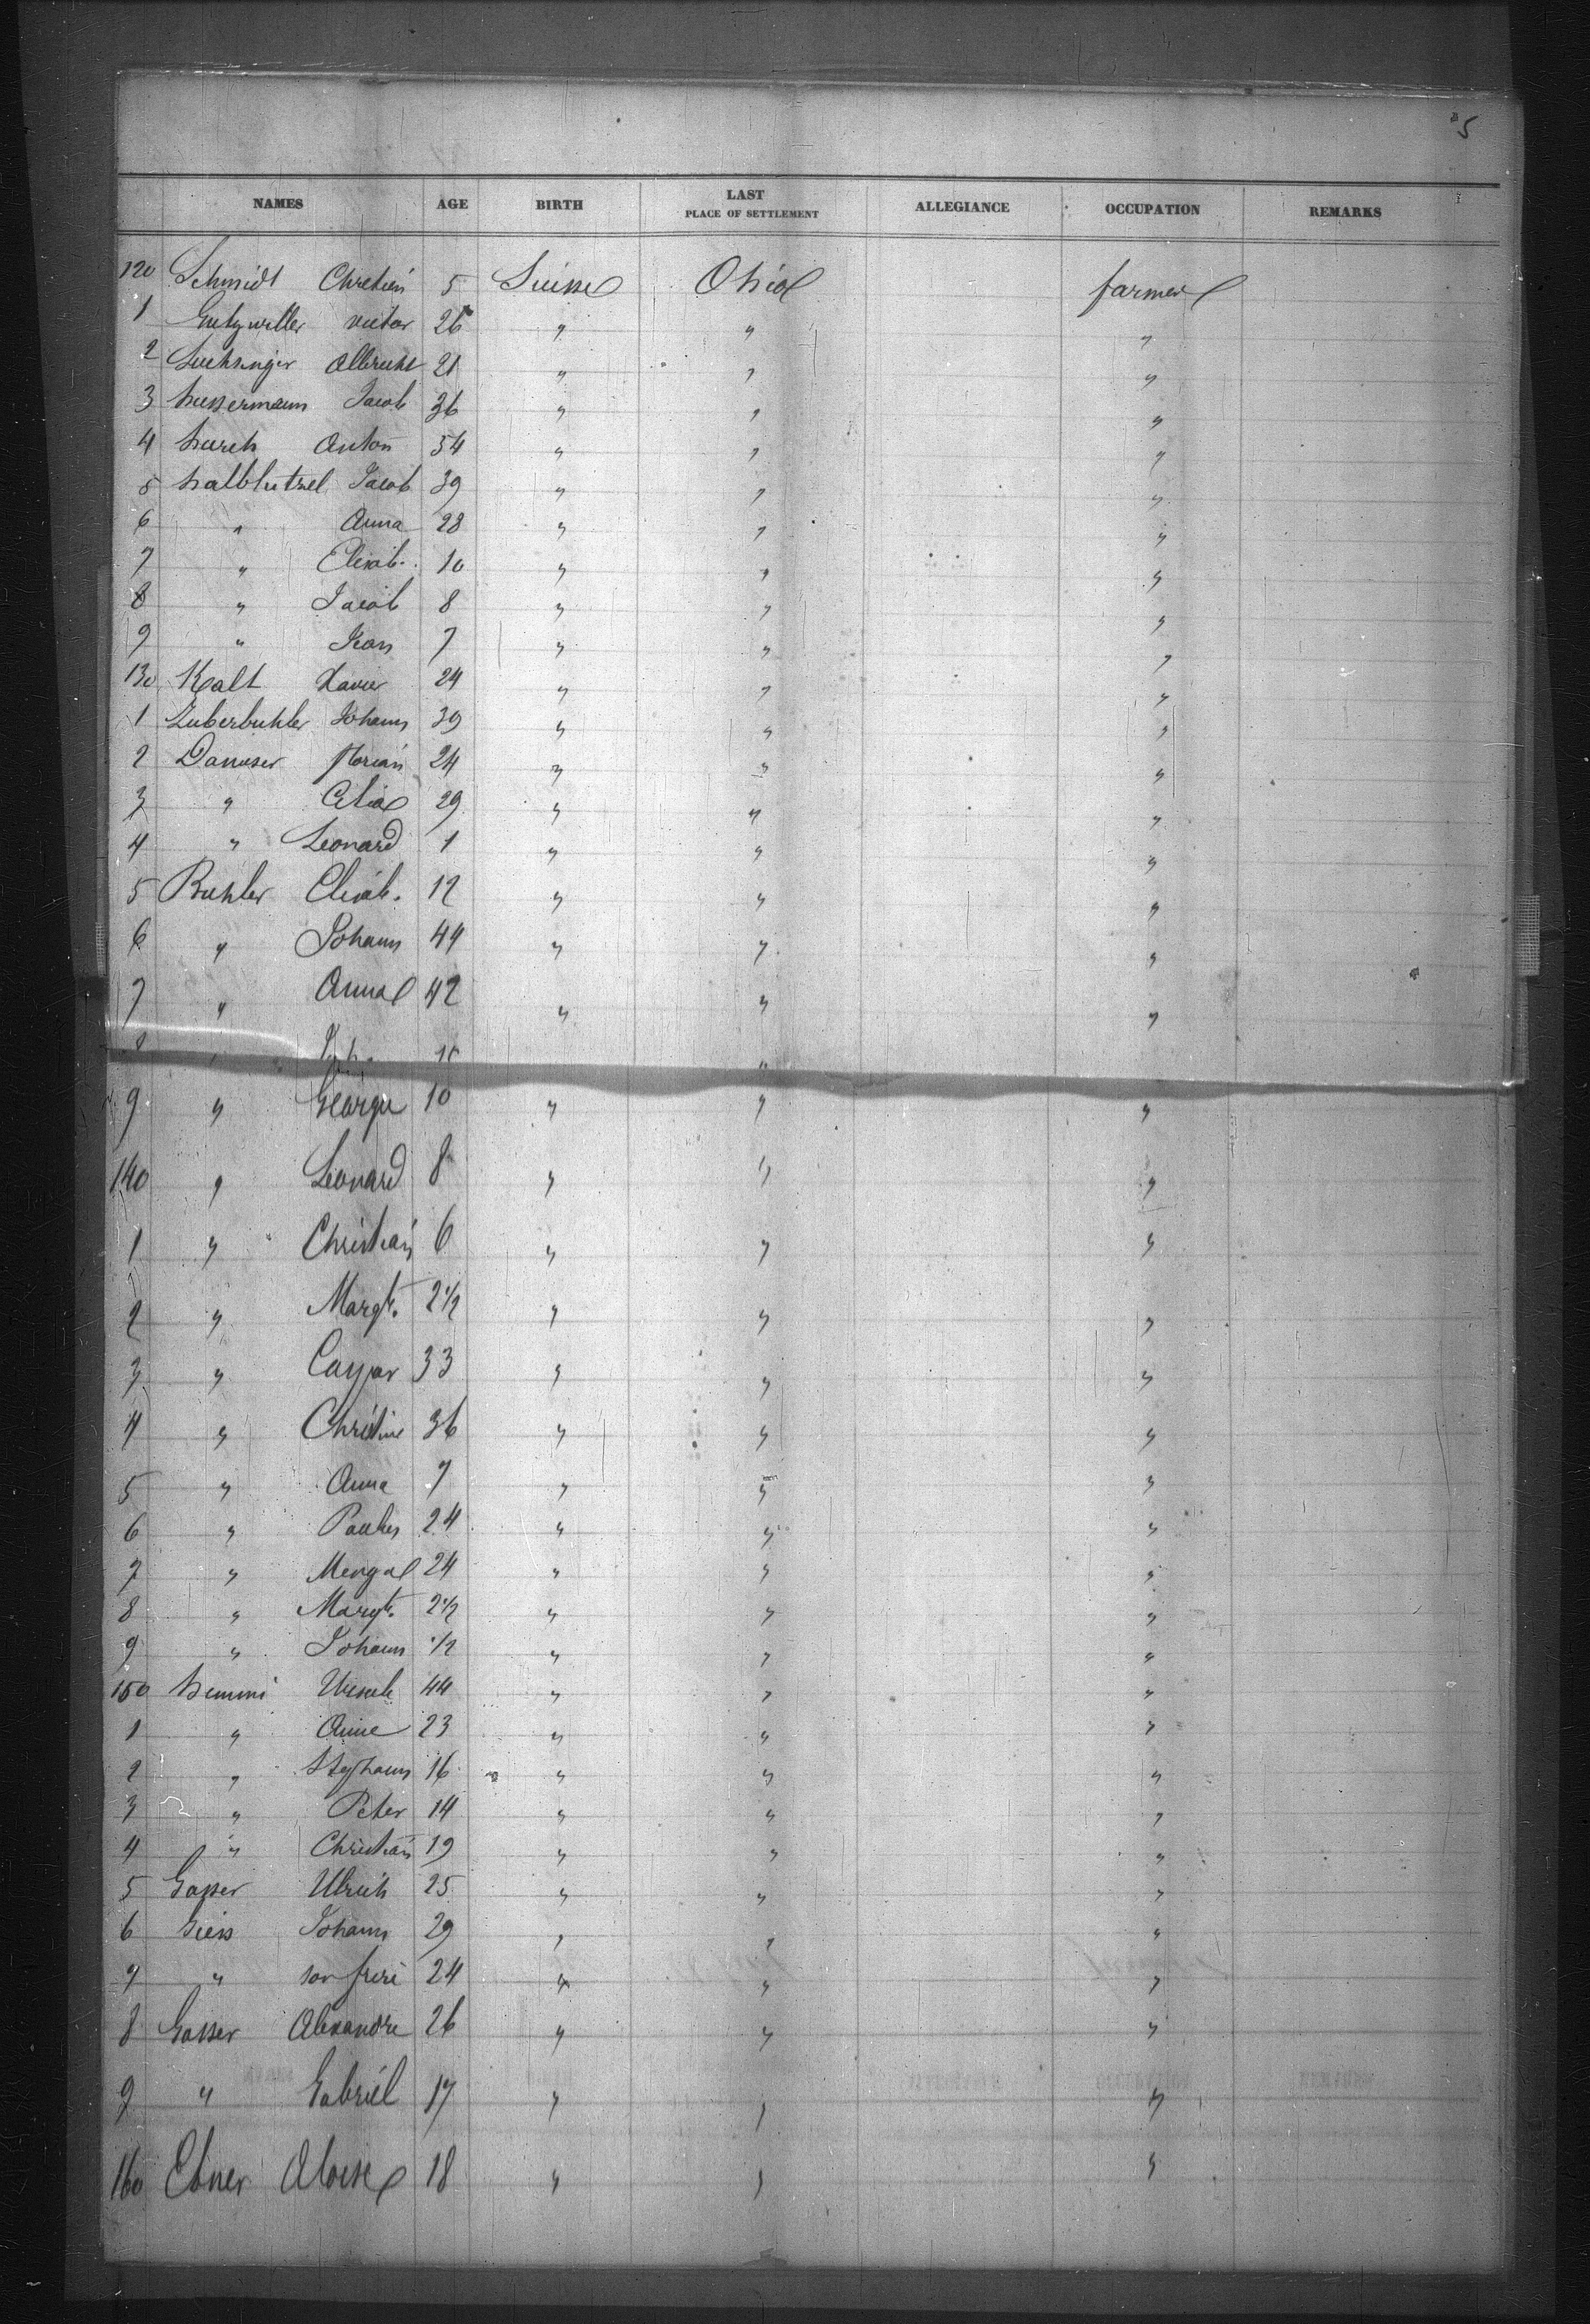 5
NAMES AGE BIRTH LAST PLACE OF SETTLEMENT ALLEGIANCE OCCUPATION REMARKS
120 Schmidt Chretien 5 Suisse Ohio farmer
1 Gutzwiller victor 26 " " "
2 Luchsinger Albrecht 21 " " "
3 hussermann Jacob 36 " " "
4 hurch Anton 34 " " "
5 halblutzel Jacob 39 " " "
6 " Anna 28 " " "
7 " Elisab. 10 " " "
8 " Jacob 8 " " "
9 " Jean 7 " " "
130 Kalt Xavier 24 " " "
1 Zuberbuhler Johann 39 " " "
2 Danuser florian 24 " " "
3 " 29 " " "
4 " Leonard 1 " " "
5 Buhler Elisab. 12 " " "
6 " Johann 44 " " "
7 " Anna 42 " " "
8 " "
9 " George 10 " " "
140 " Leonard 8 " " "
1 " Christian 6 " " "
2 " Margt. 2 1/2 " " "
3 " Caspar 33 " " "
4 " Christine 36 " " "
5 " Anna 7 " " "
6 " Paulus 24 " " "
7 " Menga 24 " " "
8 " Margt. 2 1/2 " " "
9 " Johann 1/2 " " "
150 hemmi Ursule 44 " " "
1 " Anne 23 " " "
2 " Stephann 16 " " "
3 " Peter 14 " " "
4 " Christian 19 " " "
5 Gasser Ulrich 25 " " "
6 Giess Johann 29 " " "
7 " son frère 24 " " "
8 Gasser Alexandre 26 " " "
9 " Gabriel 17 " " "
160 Ebner Aloise 18 " " "